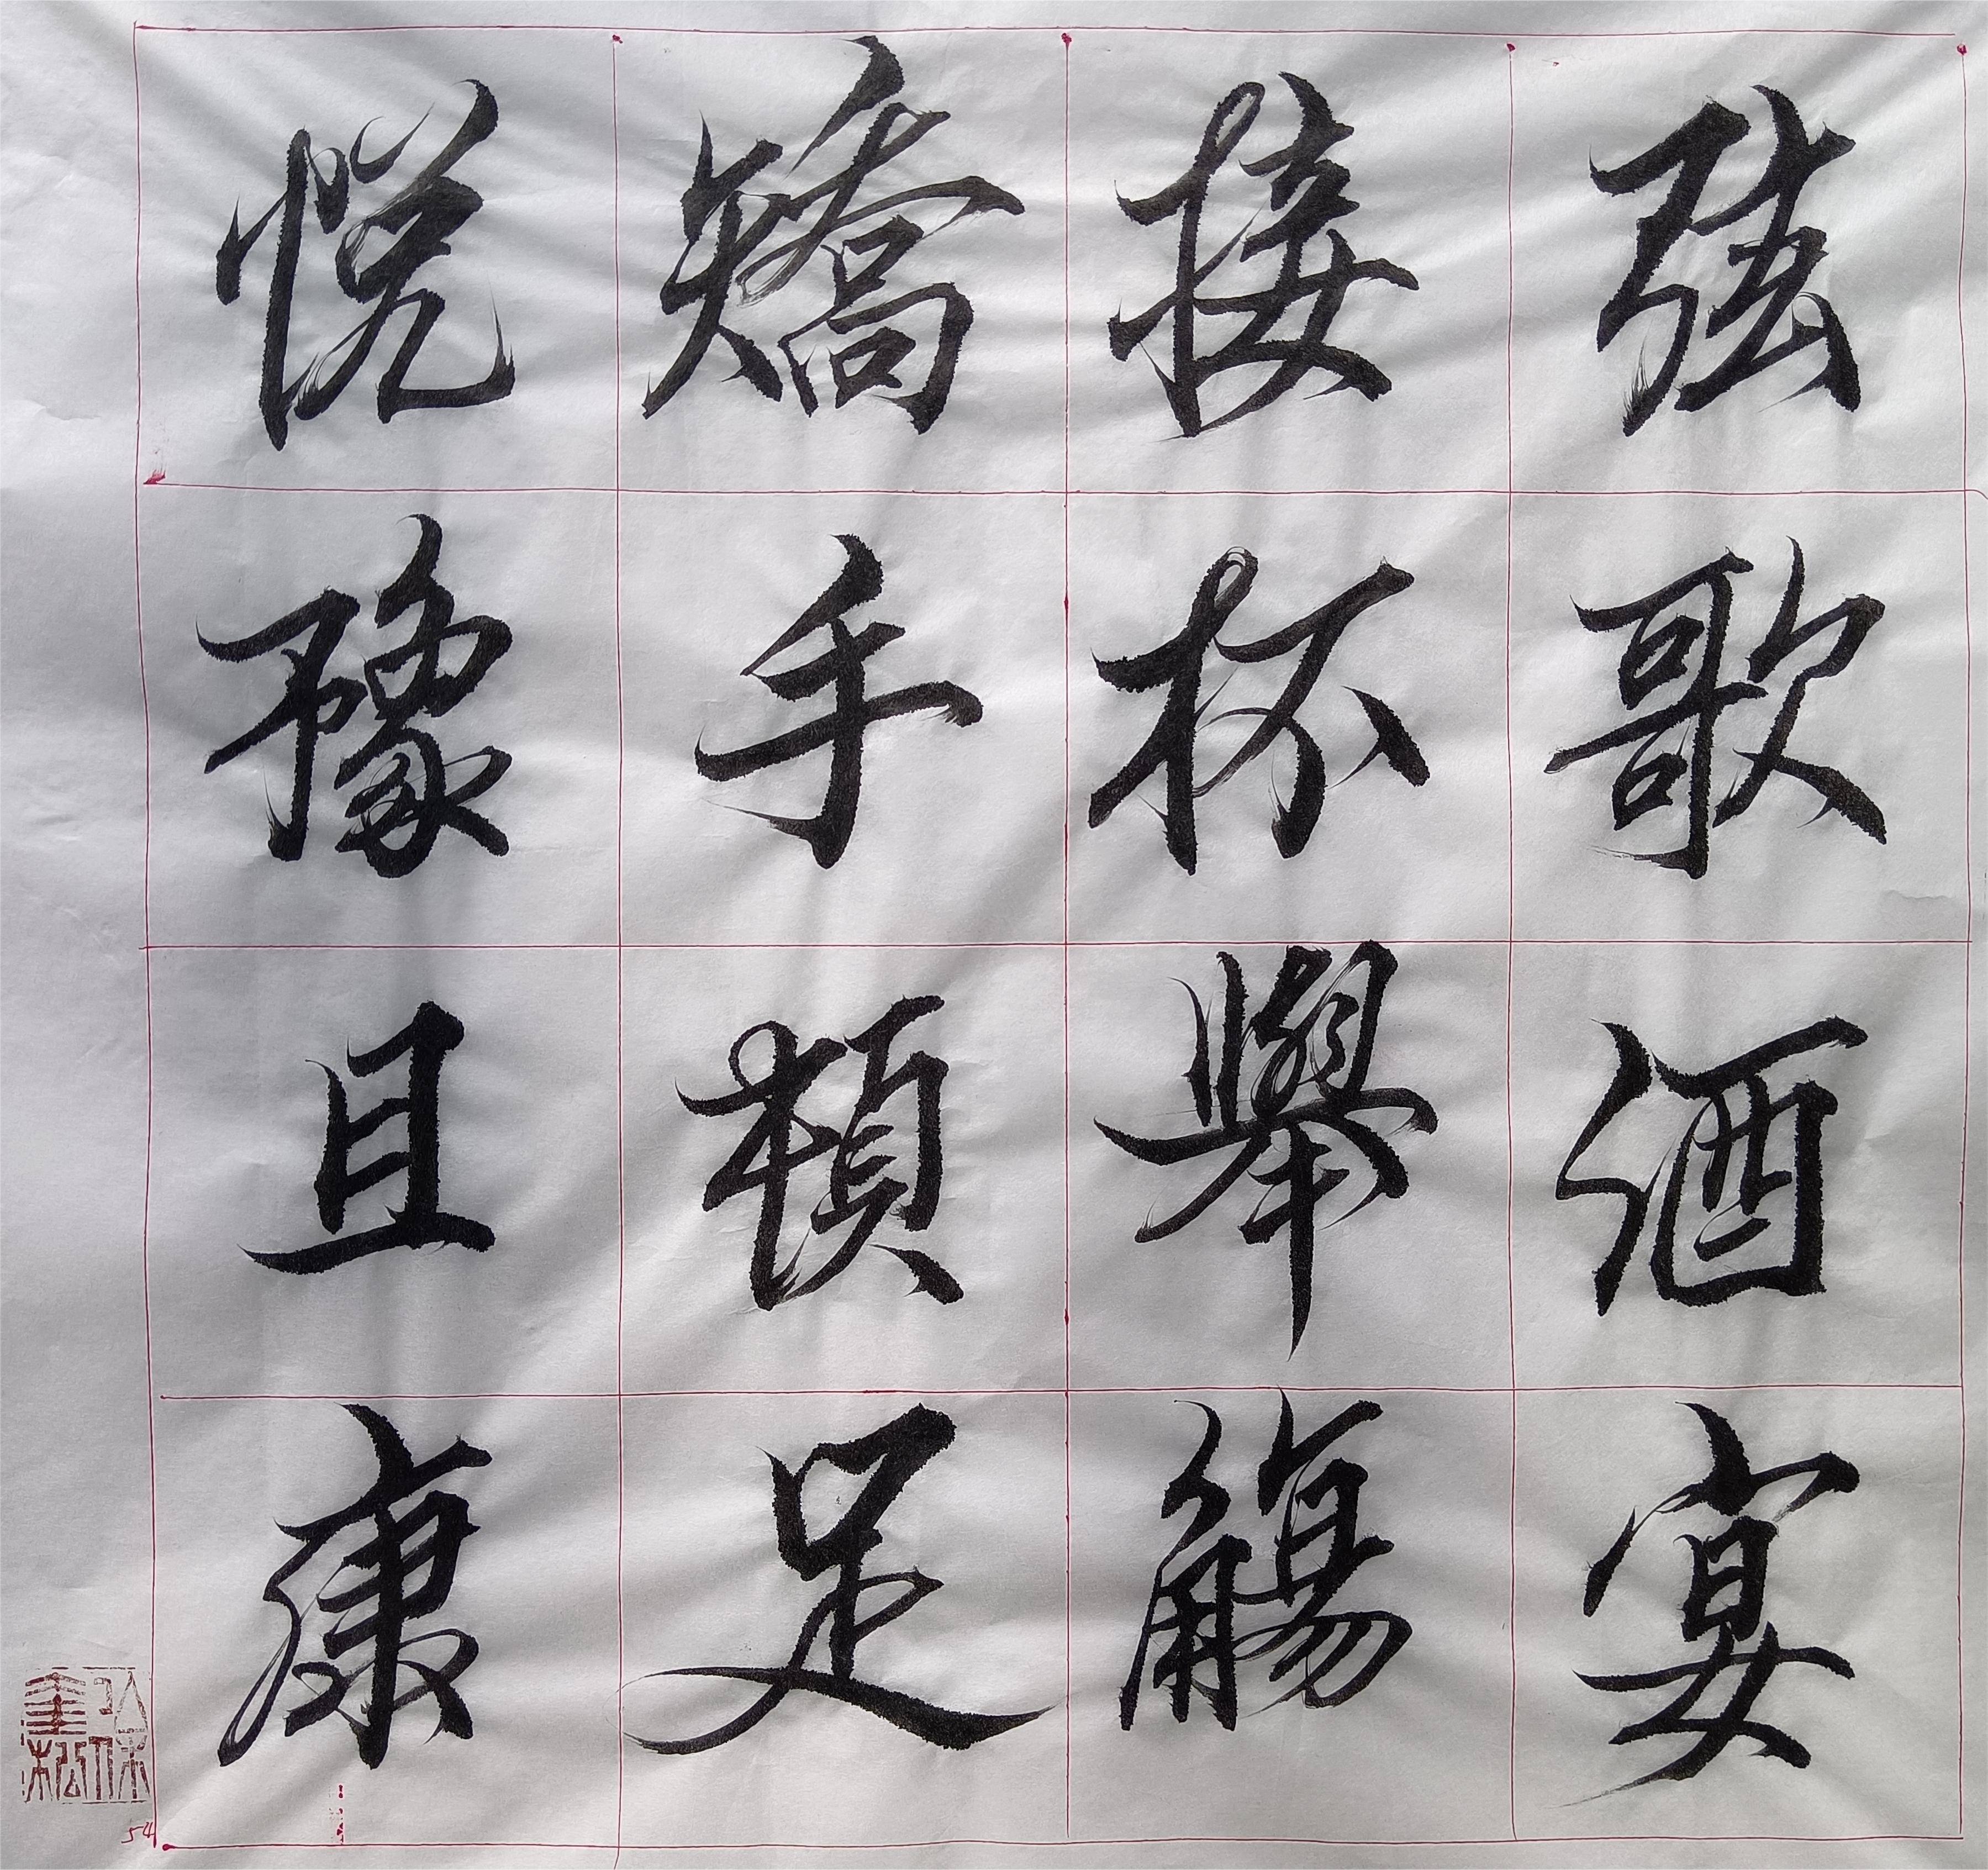 弦歌酒宴
接杯舉觴
矯手頓足
悦豫且康
54